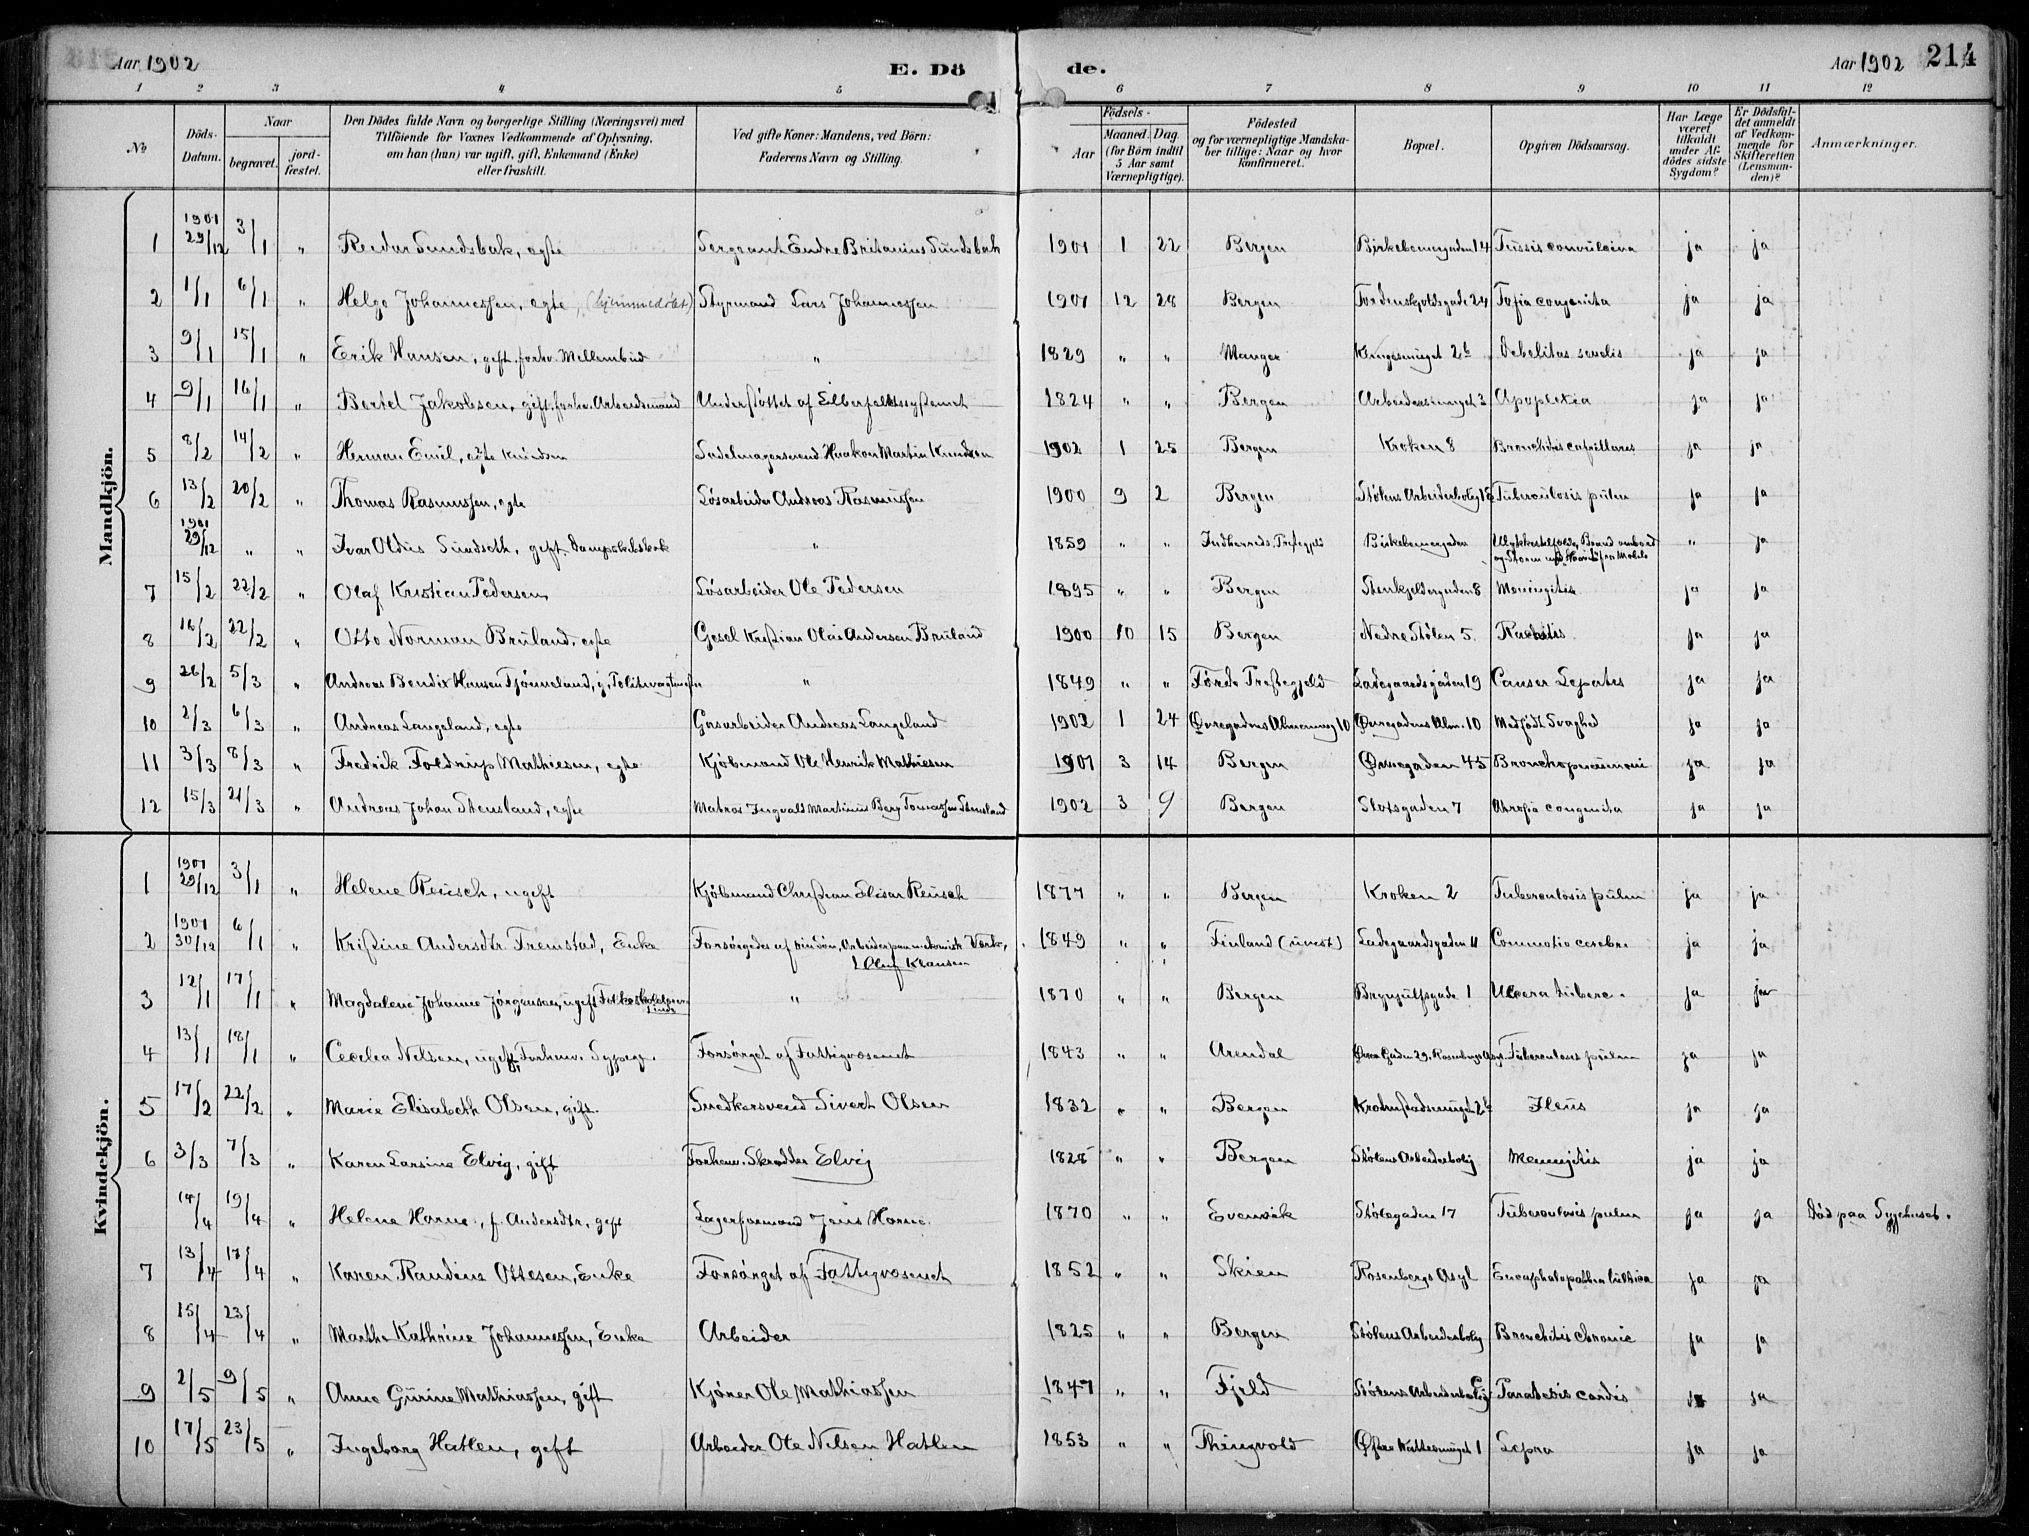 Aar 1902
E. Dö
de.
Aar 1902
214
1 2 3 4 5 6 7 8 9 10 11 12
No
Döds-Datum.
Naar
begravet.
jord-fæstet.
Den Dödes fulde Navn og borgerlige Stilling (Næringsvei) med
Tilföiende for Voxnes Vedkommende af Oplysning,
om han (hun) var ugift, gift, Enkemand (Enke)
eller fraskilt.
Ved gifte Koner: Mandens, ved Börn:
Faderens Navn og Stilling.
Födsels-
Aar
Maaned.
Dag.
(for Börn indtil
5 Aar samt
Værnepligtige).
Födested
og for værnepligtige Mandska-
ber tillige: Naar og hvor
konfirmeret.
Bopæl.
Opgiven Dödsaarsag.
Har Læge
været
tilkaldt
under Af-
dödes sidste
Sygdom?
Er Dödsfal-
det anmeldt
af Vedkom-
mende for
Skifteretten
(Lensman-
den)?
Anmærkninger.
Mandkjön.
1 1901 29/12 3/1 " Reidar Sundsbak, egte Sergeant Endre Britanius Sundsbak 1901 1 22 Bergen Birkebeinergaden 14 Tussis convulsiva ja ja
2 1/1 6/1 " Helge Johannessen, egte, (hjemmedøbt) Styrmand Lars Johannessen 1901 12 28 Bergen Tordenskjoldsgade 24 congenita ja ja
3 9/1 15/1 " Erik Hansen, gift, forhv. Mellembud " 1829 " " Manger 2b Debilitas senilis ja ja
4 9/1 16/1 " Bertel Jakobsen, gift, forhv. Arbeidsmand Understøttet af Elberfeltssystemet 1824 " " Bergen 3 Apoplexia ja ja
5 8/2 14/2 " Herman Emil, egte Knudsen Sadelmagersvend Haakon Martin Knudsen 1902 1 25 Bergen Kroken 8 Bronchitis capillares ja ja
6 13/2 20/2 " Thomas Rasmussen, egte Løsarbeider Andreas Rasmussen 1900 9 2 Bergen Stølens Arbeiderbolig Tuberculosis pulm ja ja
1901 29/12 " " Ivar Oldus Sundseth, gift " 1859 " " Indherreds Prestegjeld Birkebeinergaden Ulykkestilfælde, Brand ombord
og Storm fra Mobile " ja
7 15/2 22/2 " Olaf Kristian Pedersen, Løsarbeider Ole Pedersen 1895 " " Bergen Stenkjeldergaden 8 Meningitis ja ja
8 16/2 22/2 " Otto Norman Bruland, egte Gesel Kristian Olai Andersen Bruland 1900 10 15 Bergen Nedre Stølen 5. Rachitis ja ja
9 26/2 5/3 " Andreas Bendix Hansen Tjønneland, g, Politivagtmester " 1849 " " Førde Prestegjeld Ladegaardsgaden 19 Cancer ja ja
10 2/3 6/3 " Andreas Langeland, egte Gasarbeider Andreas Langeland 1902 1 24 Øvregadens Almenning 10 Øvregadens Alm. 10 Medfødt Svaghed ja ja
11 3/3 8/3 " Fredrik Foldrup Mathiesen, egte Kjøbmand Ole Henrik Mathiesen 1901 3 14 Bergen Øvregaden 45 Bronchopneumoni ja ja
12 15/3 21/3 " Andreas Johan Stensland, egte Matros Ingvald Martinus Berg Tomassen Stensland 1902 3 9 Bergen Slotsgaden 7 Atrofia congenita ja ja
Kvindekjön.
1 1901 29/12 3/1 " Helene Reusch, ugift Kjøbmand Christian Elisar Reusch 1877 " " Bergen Kroken 2 Tuberculosis pulm ja ja
2 1901 30/12 6/1 " Kristine Andersdtr. Fremstad, Enke Forsørgedes af sin Søn, Arbeider paa mekanisk Værk,
Oluf Klausen 1849 " " Finland Ladegaardsgaden 11 Commotio cerebri ja ja
3 12/1 17/1 " Magdalene Johanne Jørgensen, ugift " 1870 " " Bergen Brynjulfsgade 1 Ulcera tuberc. ja ja
4 13/1 18/1 " Cecilia Nilsen, ugift, Forhenv. Sypige. Forsørget af Fattigvæsenet 1843 " " Arendal Øvre Gaden 29, Rosenbergs Asyl. Tuberculosis pulm ja ja
5 17/2 22/2 " Marie Elisabeth Olsen, gift. Snedkersvend Sivert Olsen 1832 " " Bergen Ileus ja ja
6 3/3 7/3 " Karen Larsine Elvig, gift Forhenv. Skrædder Elvig 1828 " " Bergen Stølens Arbeiderbolig Meningitis ja ja
14/4 19/4 " Helene Horne, f. Andersdtr, gift Lagerformand Jens Horne. 1870 " " Evenvik Stølegaden 17 Tuberculosis pulm ja ja Død paa Sygehuset.
7 13/4 17/4 " Karen Randine Ottesen, Enke Forsørget af Fattigvæsenet 1852 " " Skien Rosenbergs Asyl ja ja
8 15/4 23/4 " Marthe Kathrine Johannessen, Enke Arbeider 1825 " " Bergen Stølens Arbeiderbolig Bronchitis chronic ja ja
9 2/5 9/5 " Anne Gurine Mathiassen, gift Ole Mathiassen 1847 " " Fjeld Stølens Arbeiderbolig Paralysis cordis ja ja
10 17/5 23/5 " Ingeborg Hatlen, gift Arbeider Ole Nilsen Hatlen 1853 " " Thingvold 1 Lepra ja ja